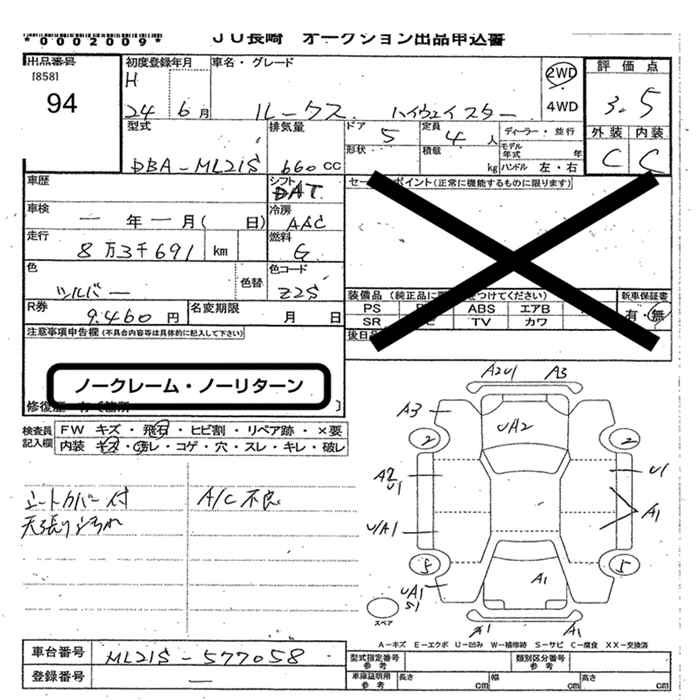 *0002009*
JU長崎 オークション出品申込書
出品番号
[858]
94
初度登録年月
H
24年 6月
車名・グレード
ルークス ハイウェイスター
2WD
4WD
評価点
3.5
外装 内装
C C
型式
DBA-ML21S
排気量
660 CC
ドア 5
形状
定員 4人
積載 kg
ディーラー・並行
モデル年式 年
ハンドル 左・右
車歴
シフト
DAT
車検
一 年 一 月( 日)
冷房
AAC
走行
8万3千691 km
燃料
G
色
シルバー
色替
色コード
Z2S
R券
9,460 円
名変期限
月 日
セールスポイント(正常に機能するものに限ります)
装備品
PS ABS エアB
SR TV カワ
新車保証書
有・無
後日
注意事項申告欄(不具合内容等は具体的に記入して下さい)
ノークレーム・ノーリターン
修復歴 有〔箇所 〕
検査員記入欄
FW キズ・飛石・ヒビ割・リペア跡・×要
内装 キズ・汚レ・コゲ・穴・スレ・キレ・破レ
シートカバー付
天張りよごれ
A/C不良
A2U1 A3
A3
UA2
2 2
A2
U1
U1
A1
U/A1
5 5
UA1
S1
A1
A1 A1
スペア
A-キズ E-エクボ U-凹み W-補修跡 S-サビ C-腐食 XX-交換済
車台番号
ML21S-577058
登録番号
—
型式指定番号
参考
類別区分番号
参考
車庫証明用
参考
長さ cm
幅 cm
高さ cm